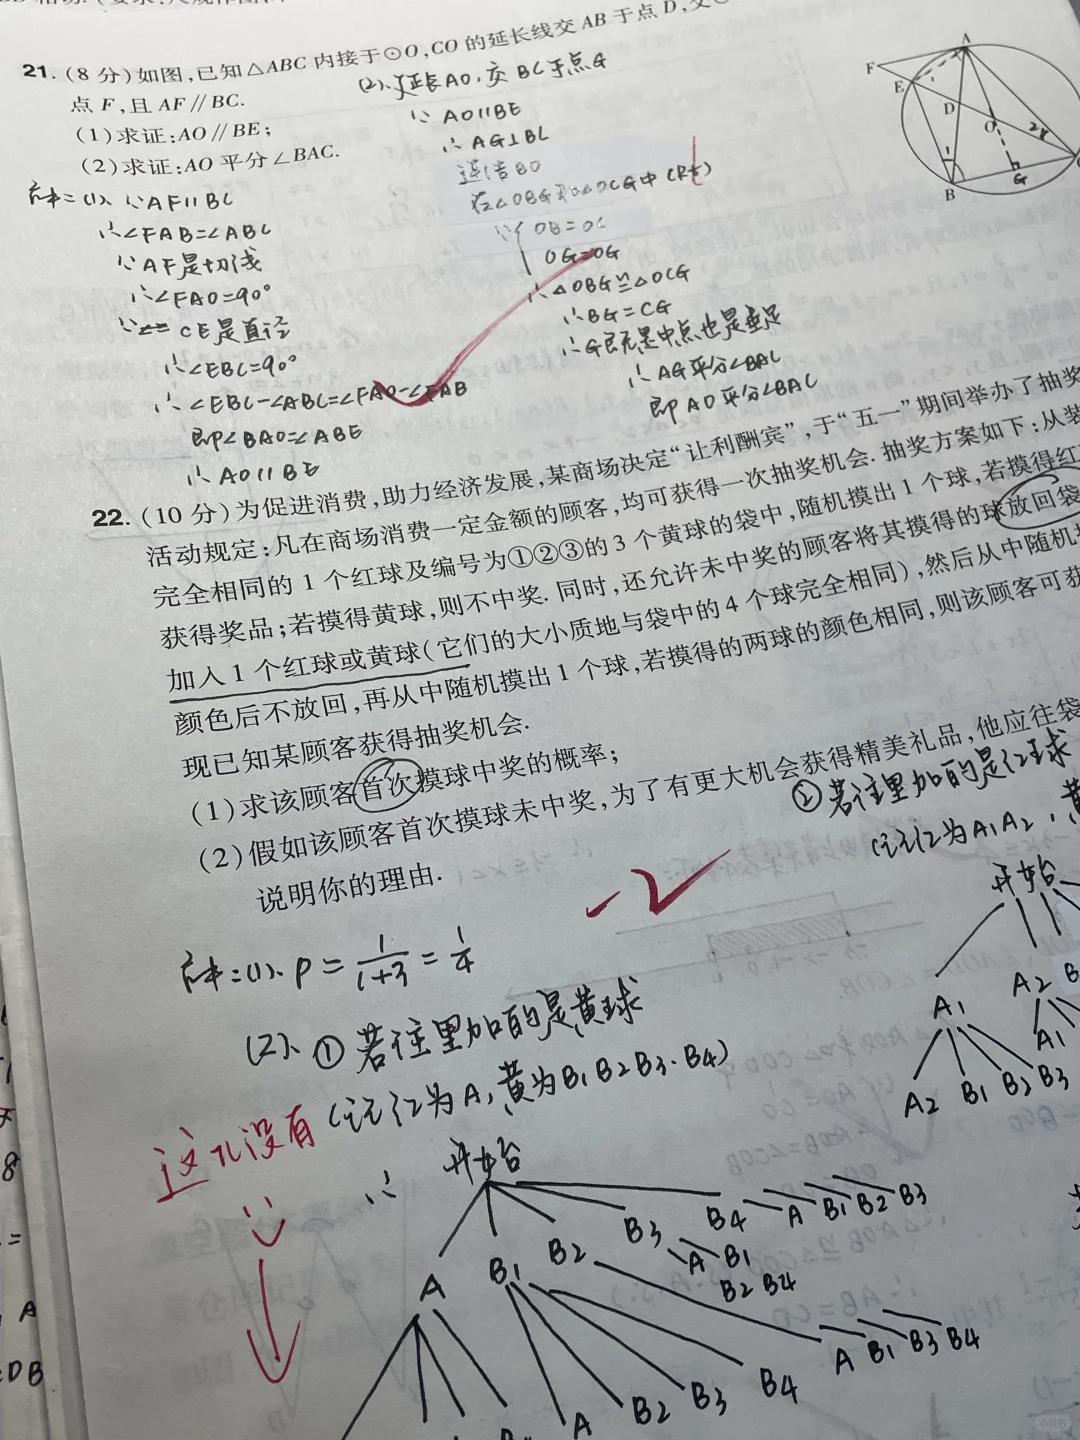 21.(8分)如图,已知△ABC内接于⊙O,CO的延长线交AB于点D,交⊙
点F,且AF∥BC.
(1)求证:AO∥BE;
(2)求证:AO平分∠BAC.
(1)、∵AF∥BC
∴∠FAB=∠ABC
∵AF是切线
∴∠FAO=90°
CE是直径
∴∠EBC=90°
∴∠EBC-∠ABC=∠FAO-∠FAB
即∠BAO=∠ABE
∴AO∥BE
(2)、延长AO,交BC于点G
∵AO∥BE
∴AG⊥BC
连结BO
在△OBG和△OCG中(Rt)
∵{OB=OC
OG=OG
∴△OBG≌△OCG
∴BG=CG
∴G既是中点也是垂足
∴AG平分∠BAC
即AO平分∠BAC
F
A
E
D
O
B
G
22.(10分)为促进消费,助力经济发展,某商场决定“让利酬宾”,于“五一”期间举办了抽奖
活动规定:凡在商场消费一定金额的顾客,均可获得一次抽奖机会.抽奖方案如下:从装
完全相同的1个红球及编号为①②③的3个黄球的袋中,随机摸出1个球,若摸得红
获得奖品;若摸得黄球,则不中奖.同时,还允许未中奖的顾客将其摸得的球放回袋
加入1个红球或黄球(它们的大小质地与袋中的4个球完全相同),然后从中随机
颜色后不放回,再从中随机摸出1个球,若摸得的两球的颜色相同,则该顾客可获
现已知某顾客获得抽奖机会.
(1)求该顾客首次摸球中奖的概率;
(2)假如该顾客首次摸球未中奖,为了有更大机会获得精美礼品,他应往袋
说明你的理由.
(1)、P=1/(1+3)=1/4
(2)、①若往里加的是黄球
(记红为A,黄为B1 B2 B3、B4)
这儿没有
∴ 开始
A B1 B2 B3 B4
A B1 B2 B3
A B1
B2 B4
A B1 B3 B4
A B2 B3 B4
②若往里加的是红球
(记红为A1 A2,黄
开始
A1 A2
A2 B1 B2 B3 A1